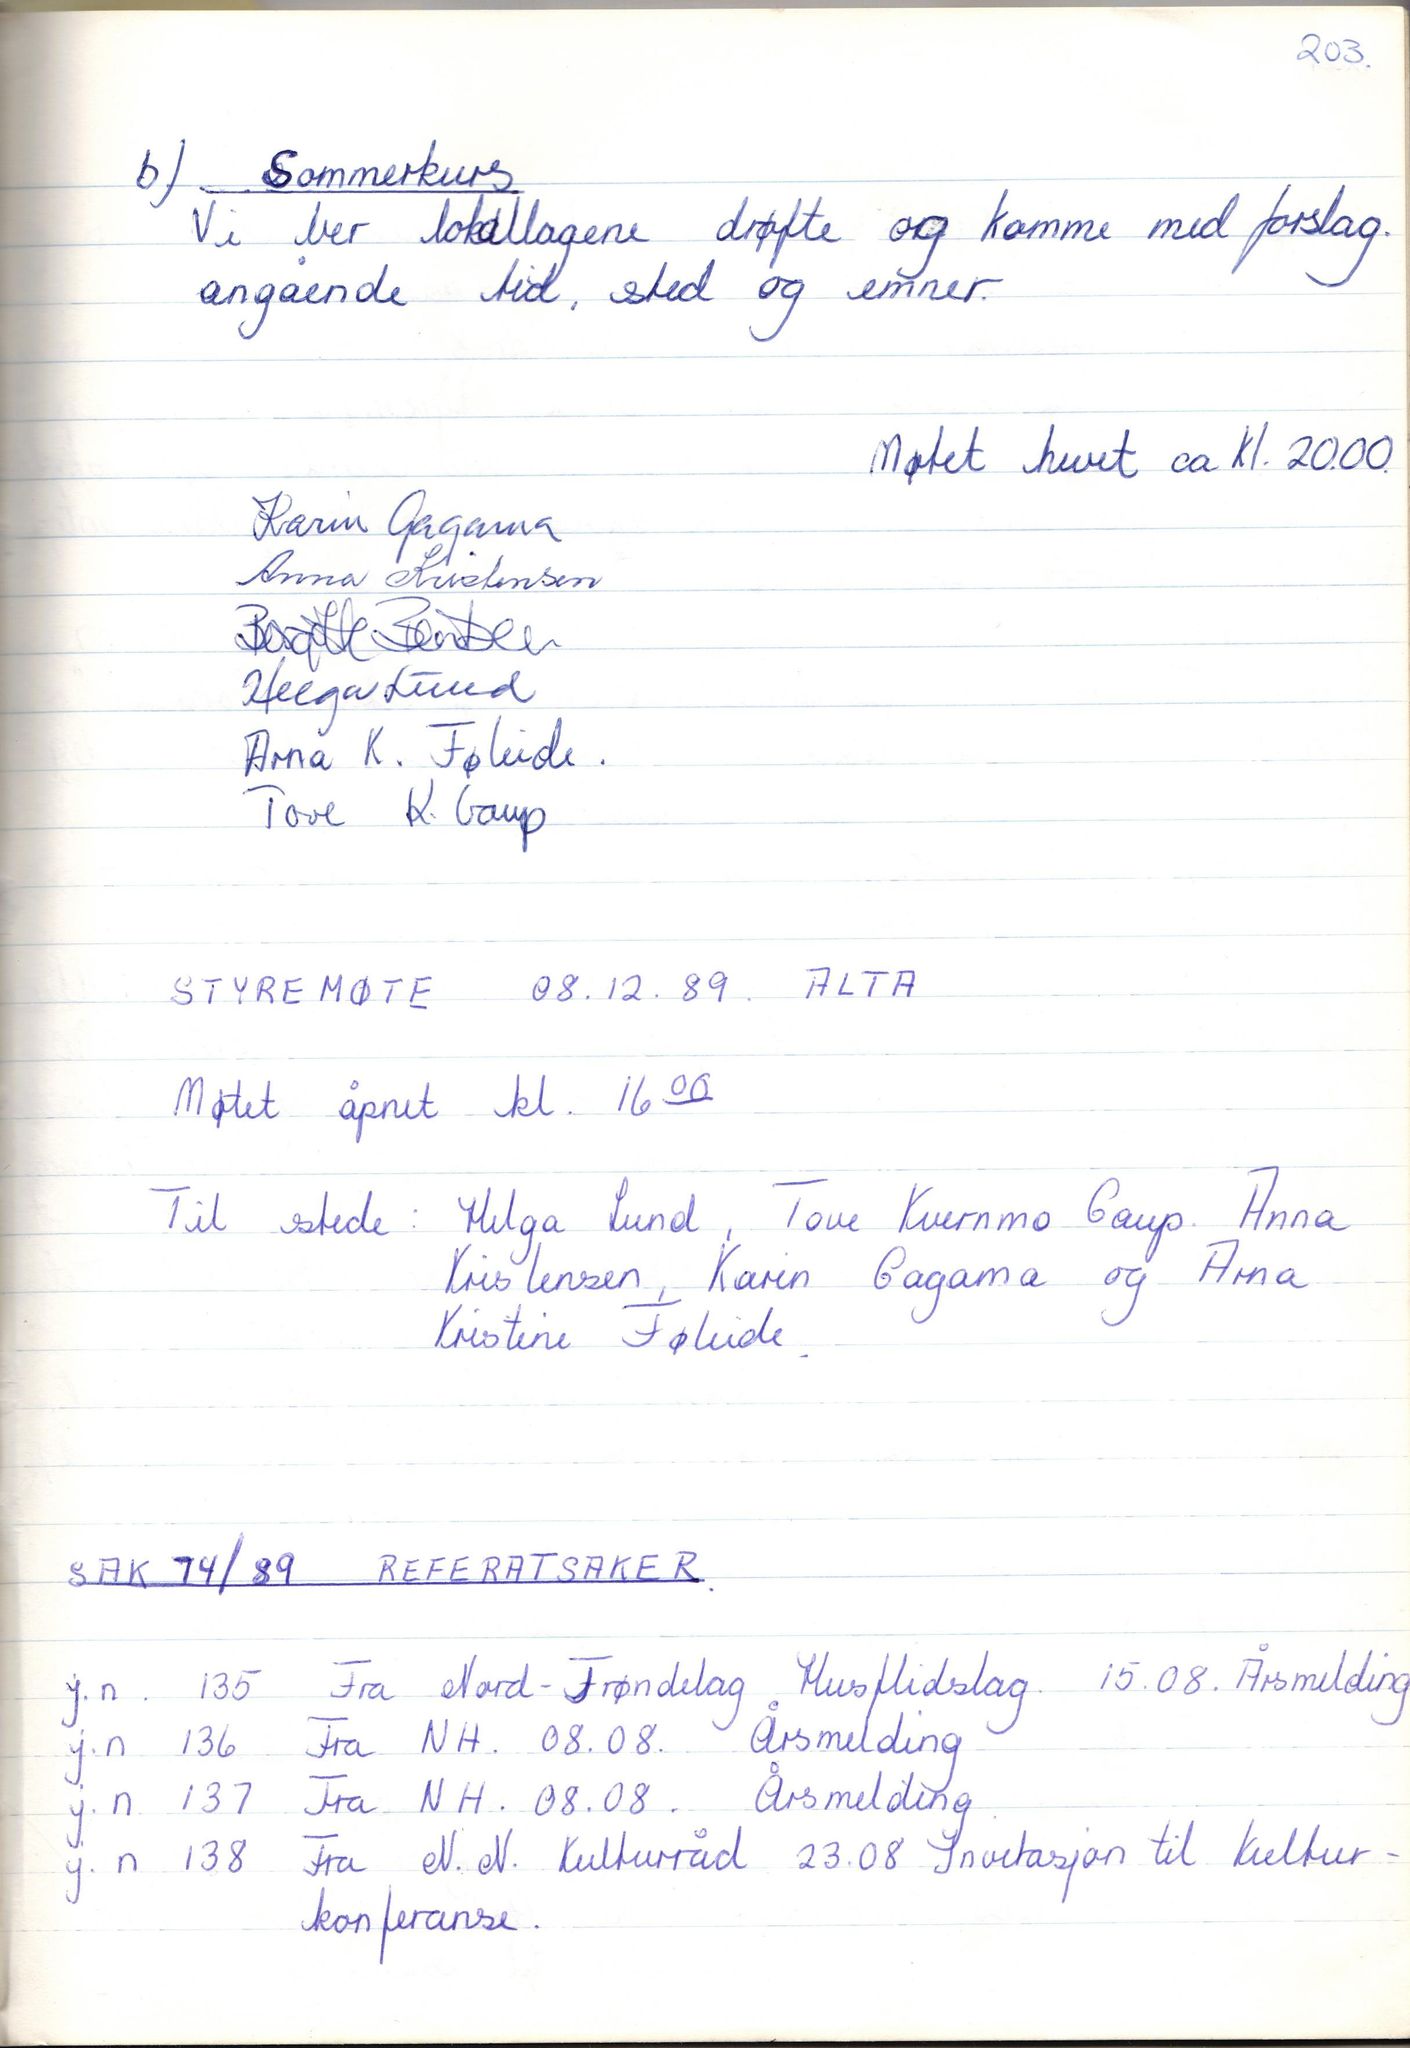 203.
b) Sommerkurs
Vi ber lokallagene drøfte og komme med forslag.
angående tid, sted og emner.
Møtet hevet ca kl. 20.00.
Karin Gagama
Anna Kristensen
Helga Lund
Arna K. Føleide.
Tove K. Gaup
STYREMØTE 08.12.89. ALTA
Møtet åpnet kl. 16 00
Til stede: Helga Lund, Tove Kvernmo Gaup. Anna
Kristensen, Karin Gagama og Arna
Kristine Føleide.
SAK 74/89 REFERATSAKER.
j.n. 135 Fra Nord-Trøndelag Husflidslag. 15.08. Årsmelding
j.n 136 Fra NH. 08.08. Årsmelding
j.n 137 Fra NH. 08.08. Årsmelding
j.n 138 Fra N.N. Kulturråd 23.08 Invitasjon til Kultur-
konferanse.